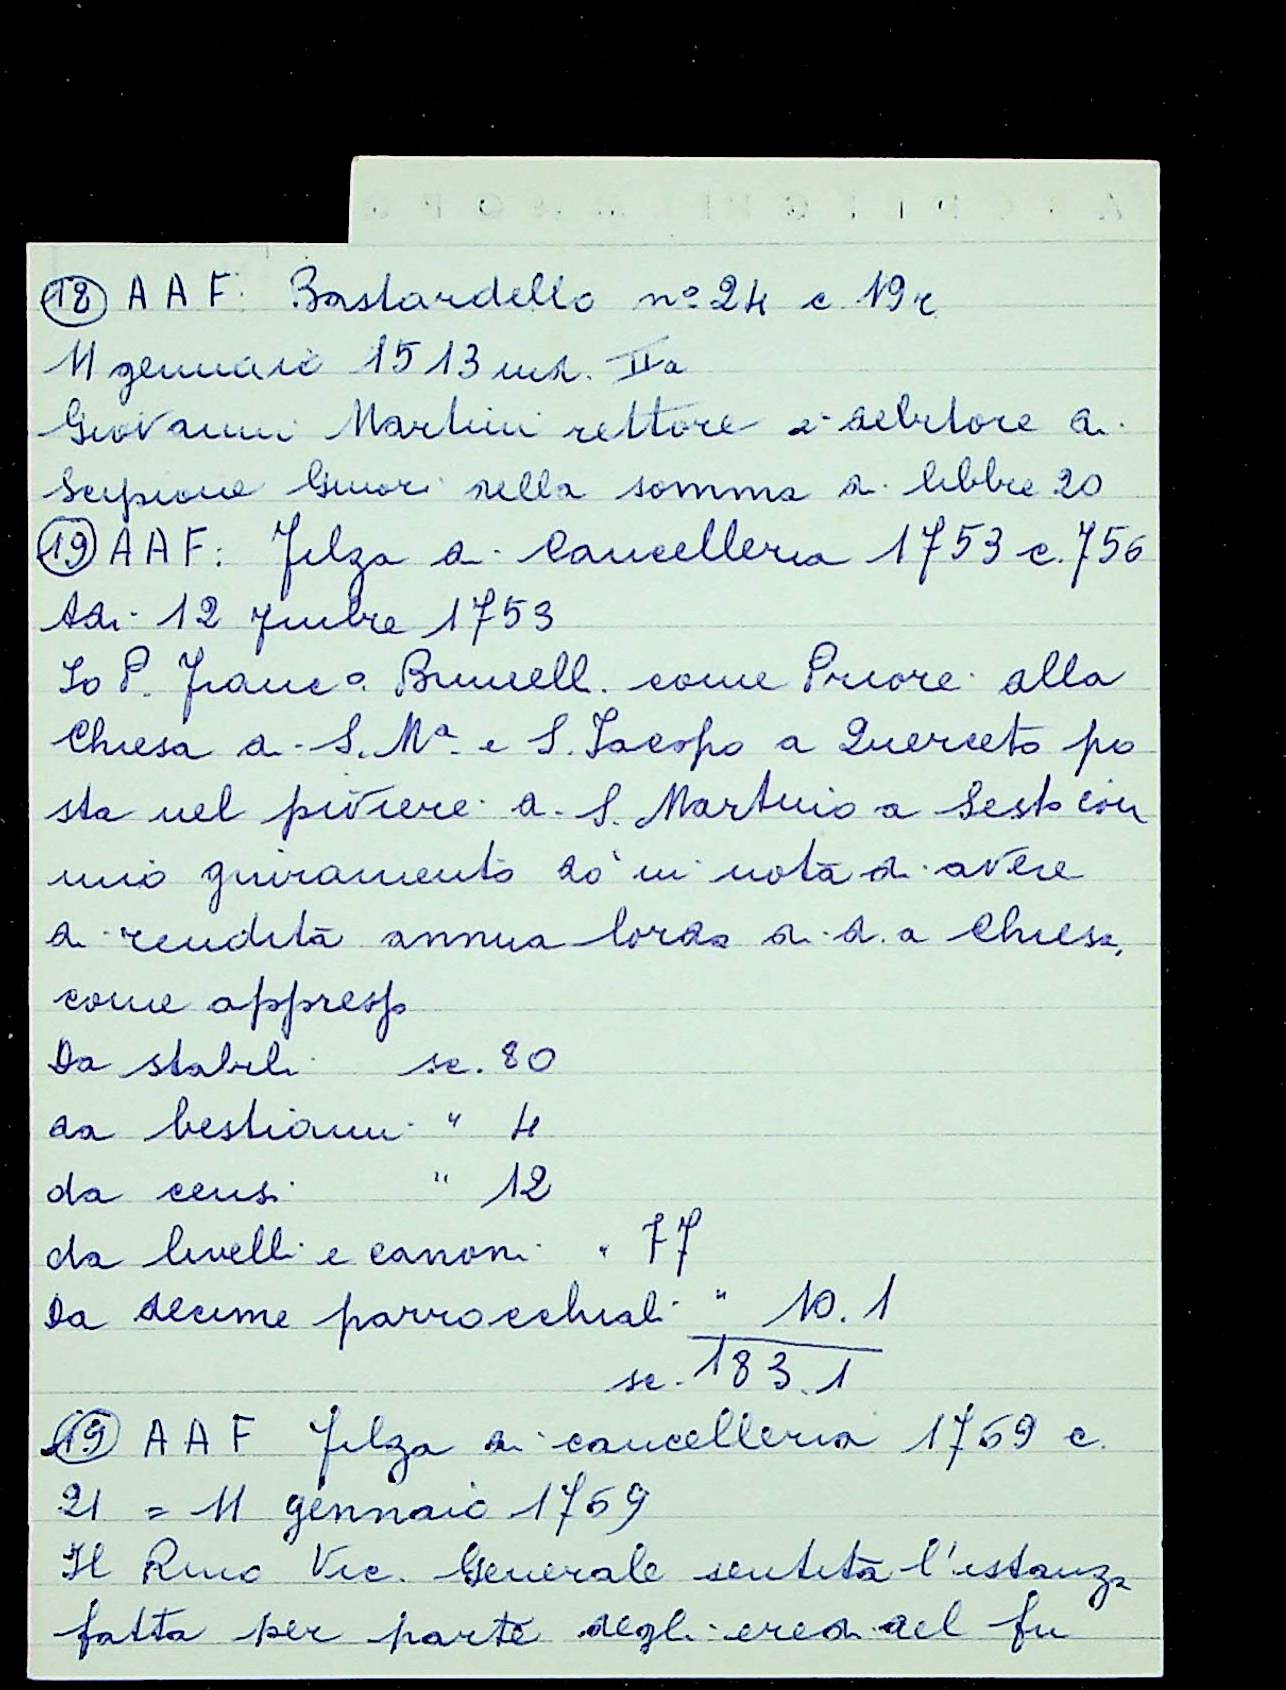 18 A A F: Bastardello n° 24 c 19r
11 gennaio 1513 ind. IIa
Giovanni Martini rettore è debitore di
Scipione Ginori nella somma di libbre 20
19 A A F: Filza di Cancelleria 1753 c. 756
Adi 12 7mbre 1753
Io P. Franc° Brunelli come Priore alla
Chiesa di S. Mª e S. Jacopo a Querceto po
sta nel piviere di S. Martino a Sesto con
mio giuramento do in nota di avere
di rendita annua lorda di d.a Chiesa,
come appresso
Da stabili sc. 80
da bestiami " 4
da censi " 12
da livelli e canoni " 77
Da decime parrocchiali " 10. 1
sc. 183. 1
19 A A F Filza di cancelleria 1769 c.
21 = 11 gennaio 1769
Il Rmo Vic. Generale sentita l'istanza
fatta per parte degli eredi del fu